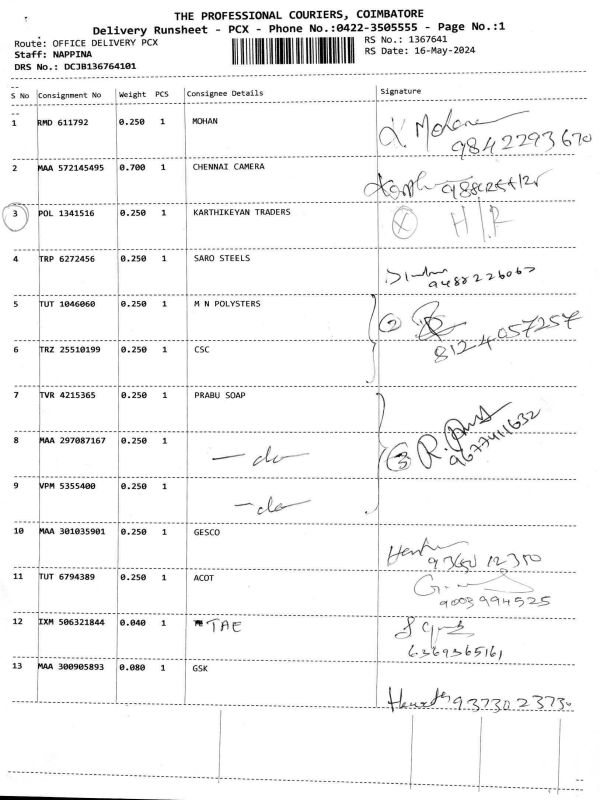 THE PROFESSIONAL COURIERS, COIMBATORE
Delivery Runsheet - PCX - Phone No.:0422-3505555 - Page No.:1
Route: OFFICE DELIVERY PCX
RS No.: 1367641
Staff: NAPPINA
RS Date: 16-May-2024
DRS No.: DCJB136764101
S No Consignment No Weight PCS Consignee Details Signature
1 RMD 611792 0.250 1 MOHAN
9842293670
2 MAA 572145495 0.700 1 CHENNAI CAMERA
3 POL 1341516 0.250 1 KARTHIKEYAN TRADERS
4 TRP 6272456 0.250 1 SARO STEELS
9488226067
5 TUT 1046060 0.250 1 M N POLYSTERS 2
8124057257
6 TRZ 25510199 0.250 1 CSC
7 TVR 4215365 0.250 1 PRABU SOAP
8 MAA 297087167 0.250 1 -do 3
9677411632
9 VPM 5355400 0.250 1 -do
10 MAA 301035901 0.250 1 GESCO
11 TUT 6794389 0.250 1 ACOT
9003994525
12 IXM 506321844 0.040 1 TAE
6369365161
13 MAA 300905893 0.080 1 GSK